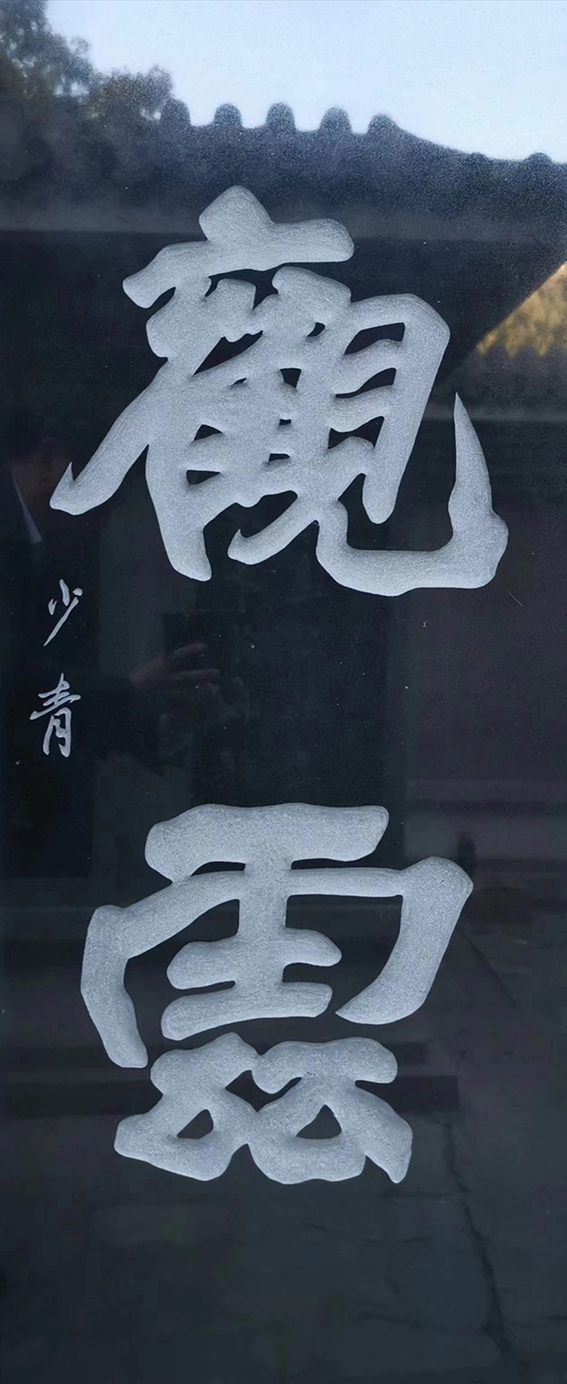 觀雲
少青